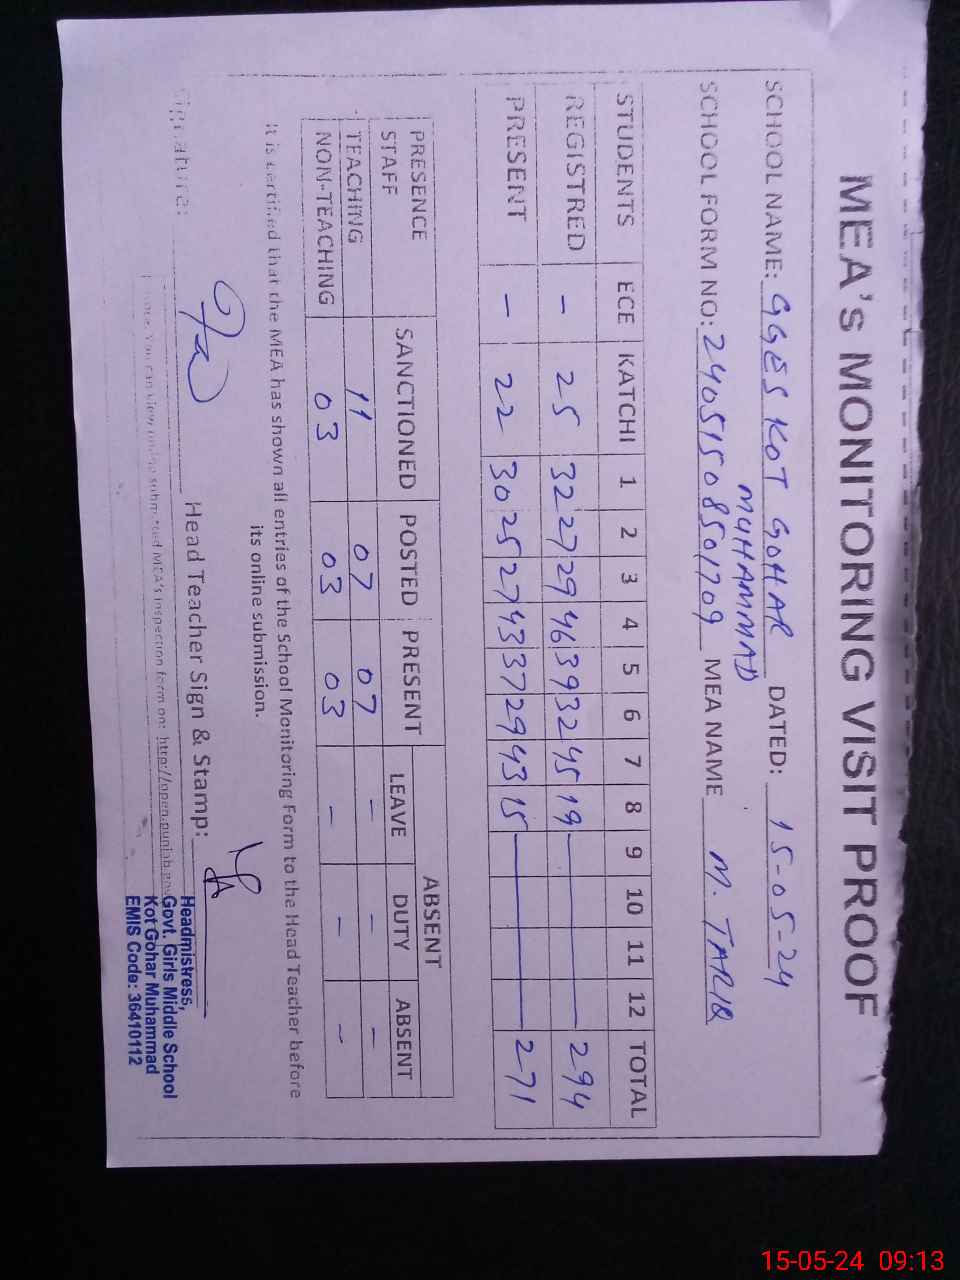 MEA's MONITORING VISIT PROOF
SCHOOL NAME: GGES KOT GOHAR MUHAMMAD DATED: 15-05-24
SCHOOL FORM NO: 24051508501709 MEA NAME M. TARIQ
STUDENTS ECE KATCHI 1 2 3 4 5 6 7 8 9 10 11 12 TOTAL
REGISTRED - 25 32 27 29 46 39 32 45 19 294
PRESENT - 22 30 25 27 43 37 29 43 15 271
PRESENCE STAFF SANCTIONED POSTED PRESENT ABSENT
LEAVE DUTY ABSENT
TEACHING 11 07 07 - - -
NON-TEACHING 03 03 03 - - -
It is certified that the MEA has shown all entries of the School Monitoring Form to the Head Teacher before
its online submission.
Signature: Head Teacher Sign & Stamp:
You can view online submitted MEA's inspection form on: http://open.punjab.gov
Headmistress,
Govt. Girls Middle School
Kot Gohar Muhammad
EMIS Code: 36410112
15-05-24 09:13